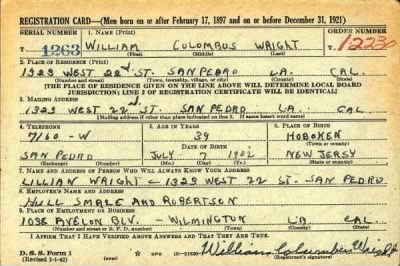 REGISTRATION CARD—(Men born on or after February 17, 1897 and on or before December 31, 1921)
SERIAL NUMBER 1. NAME (Print) ORDER NUMBER
4263 WILLIAM COLOMBUS WRIGHT 12230
(First) (Middle) (Last)
2. PLACE OF RESIDENCE (Print)
1329 WEST 22d ST. SAN PEDRO LA. CAL.
(Number and street) (Town, township, village, or city) (County) (State)
[THE PLACE OF RESIDENCE GIVEN ON THE LINE ABOVE WILL DETERMINE LOCAL BOARD
JURISDICTION; LINE 2 OF REGISTRATION CERTIFICATE WILL BE IDENTICAL]
3. MAILING ADDRESS
1329 WEST 22nd ST. SAN PEDRO LA. CAL
(Mailing address if other than place indicated on line 2. If same insert word same)
4. TELEPHONE 5. AGE IN YEARS 6. PLACE OF BIRTH
7160-W 39 HOBOKEN
DATE OF BIRTH (Town or county)
SAN PEDRO JULY 7 1902 NEW JERSY
(Exchange) (Number) (Mo.) (Day) (Yr.) (State or country)
7. NAME AND ADDRESS OF PERSON WHO WILL ALWAYS KNOW YOUR ADDRESS
LILLIAN WRIGHT - 1329 WEST 22 ST. SAN PEDRO
8. EMPLOYER'S NAME AND ADDRESS
HULL SMALE AND ROBERTSON
9. PLACE OF EMPLOYMENT OR BUSINESS
1038 AVELON BLV. - WILMINGTON LA. CAL.
(Number and street or R. F. D. number) (Town) (County) (State)
I AFFIRM THAT I HAVE VERIFIED ABOVE ANSWERS AND THAT THEY ARE TRUE.
D. S. S. Form 1 GPO William Columbus Wright
(Revised 1-1-42) (over) (Registrant's signature)